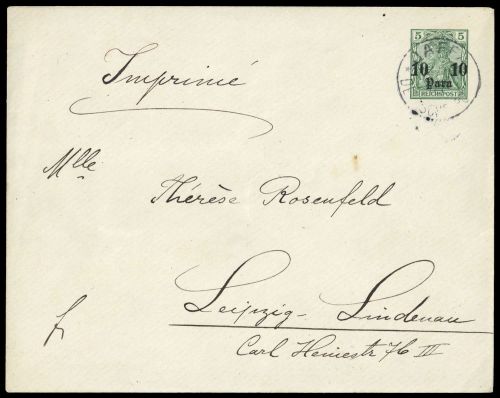 Imprimé
5 5
JAFFA
10 10
Para
REICHSPOST
Mlle
Thérèse Rosenfeld
Leipzig-Lindenau
Carl Heinestr 76 III